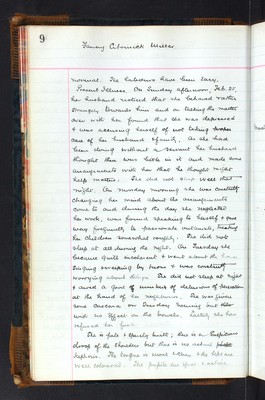 9
Fanny Miller
normal. The balances have been easy.
Present Illness. On Sunday afternoon, Feb. 25,
her husband noticed that she behaved rather
strangely towards him and on talking the matter
over with her found that she was depressed
& was accusing herself of not taking proper
care of her husband & family. As she had
been doing without a servant her husband
thought there was little in it and made some
arrangements with her that he thought might
help matters. She did not sleep well that
night. On Monday morning she was constantly
changing her mind about the arrangements
come to and during the day she neglected
her work, was found speaking to herself & gave
way frequently to passionate outbursts, treating
her children somewhat roughly. She did not
sleep at all during the night. On Tuesday she
became quite incoherent & went about the
singing & weeping by turns & was constantly
worrying about things. She did not sleep at night
& raved a good deal of delusions of
at the hand of her neighbours. She was given
some Cascara on Tuesday morning but
with no effect on the bowels. Lately she has
refused her food.
She is pale & thin; there is a suspicious
droop of the shoulders but there is no actual
The tongue is moist & clean & the lips are
well coloured. The pupils are &